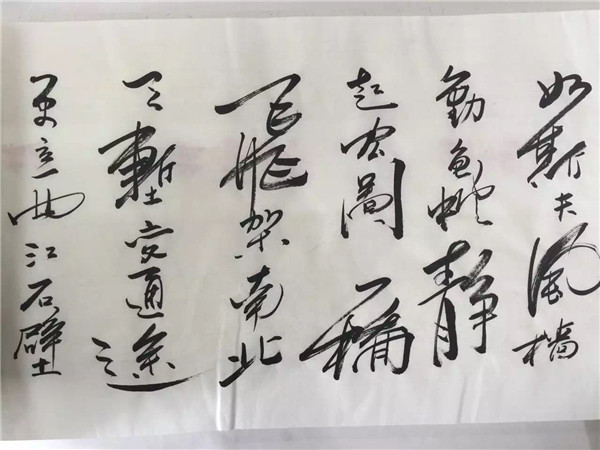 如斯夫风樯
動龟蛇静
起宏圖一橋
飛架南北
天塹变通途
更立西江石壁